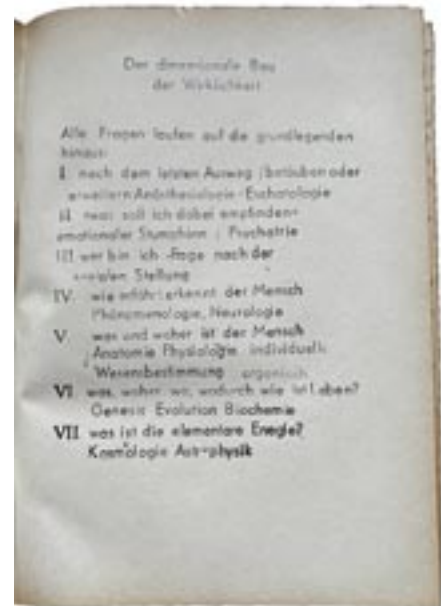 Der dimensionale Bau
der Wirklichkeit
Alle Fragen laufen auf die grundlegenden
hinaus:
I nach dem letzten Ausweg oder
Eschatologie
II was soll ich dabei empfinden
emotionaler Psychatrie
III wer bin ich -Frage nach der
sozialen Stellung
IV. wie erkennt der Mensch
Phänomenologie, Neurologie
V was und woher ist der Mensch
Anatomie Physiologie
Wesensbestimmung organisch
VI was, woher wo, wodurch wie ist Leben?
Genesis Evolution Biochemie
VII was ist die elementare Enegie?
Kosmologie